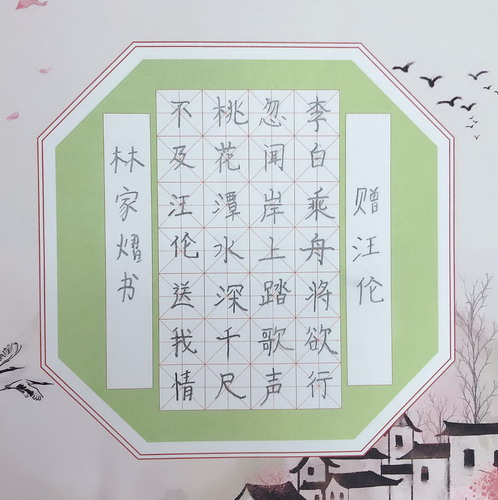 赠汪伦
李白乘舟将欲行
忽闻岸上踏歌声
桃花潭水深千尺
不及汪伦送我情
林家熠书